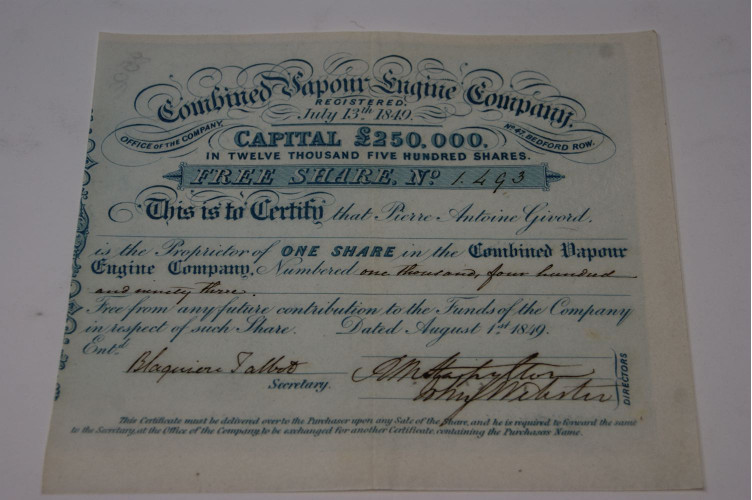 Combined Vapour Engine Company.
REGISTERED.
July 13th 1849.
OFFICE OF THE COMPANY,
No 47, BEDFORD ROW.
CAPITAL £250,000.
IN TWELVE THOUSAND FIVE HUNDRED SHARES.
FREE SHARE. No 1.493
This is to Certify that Pierre Antoine Givord.
is the Proprietor of ONE SHARE in the Combined Vapour
Engine Company, Numbered one thousand, four hundred
and ninety three.
Free from any future contribution to the Funds of the Company
in respect of such Share. Dated August 1st 1849.
Entd.
Blaquiere Talbot
Secretary.
Webster
DIRECTORS
This Certificate must be delivered over to the Purchaser upon any Sale of the Share, and he is required to forward the same
to the Secretary, at the Office of the Company to be exchanged for another Certificate, containing the Purchasers Name.